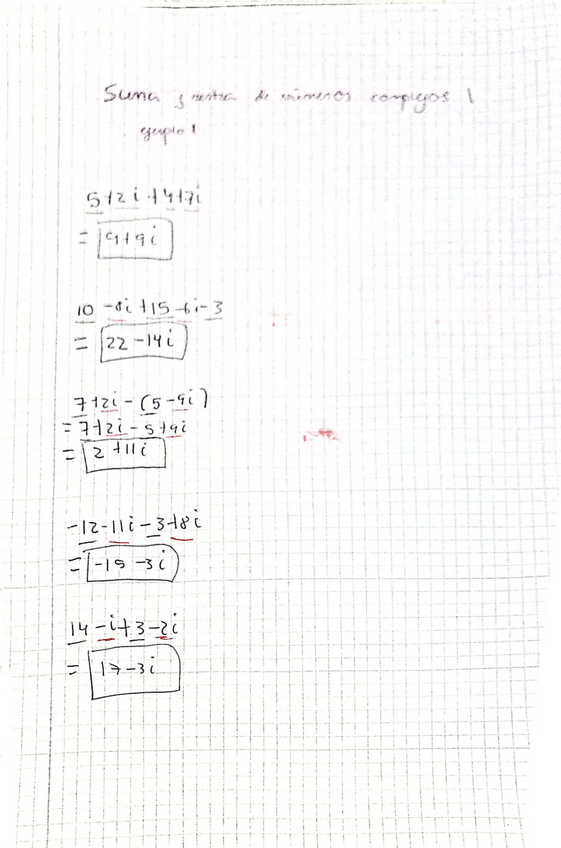 Suma y resta de números complejos 1
ejemplo 1
5+2i+4+7i
= 9+9i
10 -8i+15-6i-3
= 22-14i
7+2i-(5-9i)
= 7+2i-5+9i
= 2+11i
-12-11i-3+8i
= -15-3i
14-i+3-2i
= 17-3i